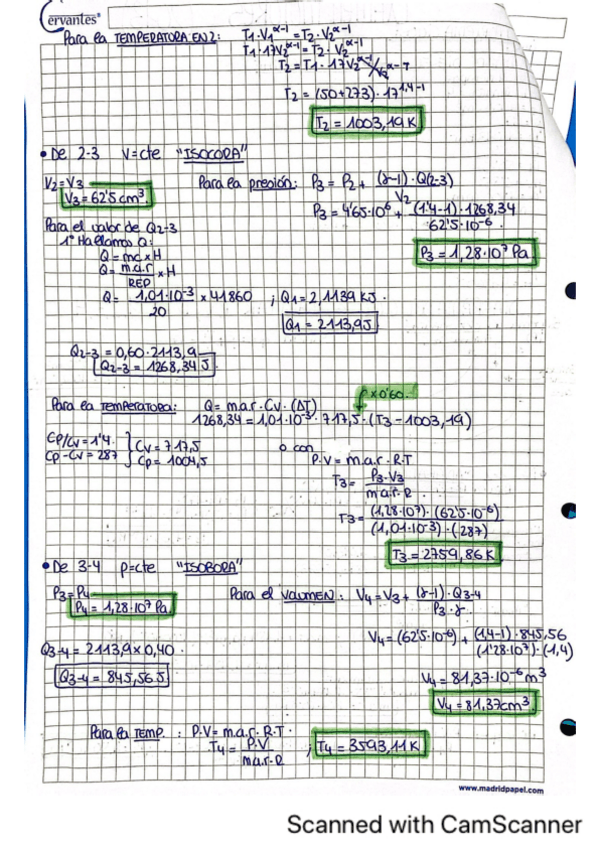 Cervantes®
Para la TEMPERATURA EN 2: T1·V1^γ-1 = T2·V2^γ-1
T1·17V2^γ-1 = T2·V2^γ-1
T2 = T1·17V2^γ-1/V2^γ-1
T2 = (50+273)·17^1,4-1
T2 = 1003,19 K
• De 2-3 V=cte "ISOCORA"
V2=V3
V3=62'5 cm³
Para la presión: P3 = P2 + (γ-1)·Q(2-3)/V2
P3 = 4'65·10⁶ + (1'4-1)·1268,34/62'5·10⁻⁶
P3 = 1,28·10⁷ Pa
Para el valor de Q2-3
1º Hallamos Q:
Q = mc x H
Q = m.a.r/REP x H
Q = 1,01·10⁻³/20 x 41860 ; Q1 = 2,1139 KJ.
Q1 = 2113,9 J
Q2-3 = 0,60·2113,9
Q2-3 = 1268,34 J
Para la TEMPERATURA: Q = m.a.r·Cv·(ΔT)
x0'60.
1268,34 = 1,01·10⁻³·717,5·(T3-1003,19)
Cp/Cv = 1'4.
Cp-Cv = 287
Cv = 717,5
Cp = 1004,5
o con
P·V = m.a.r·R·T
T3 = P3·V3/m.a.r·R
T3 = (1,28·10⁷)·(62'5·10⁻⁶)/(1,01·10⁻³)·(287)
T3 = 2759,86 K
• De 3-4 p=cte "ISOBORA"
P3=P4
P4 = 1,28·10⁷ Pa
Para el VOLUMEN: V4 = V3 + (γ-1)·Q3-4/P3·γ
V4 = (62'5·10⁻⁶) + (1,4-1)·845,56/(1'28·10⁷)·(1,4)
Q3-4 = 2113,9 x 0,40.
Q3-4 = 845,56 J
V4 = 81,37·10⁻⁶ m³
V4 = 81,37 cm³
Para la TEMP. : P·V = m.a.r·R·T·
T4 = P·V/m.a.r·R ; T4 = 3593,11 K
www.madridpapel.com
Scanned with CamScanner